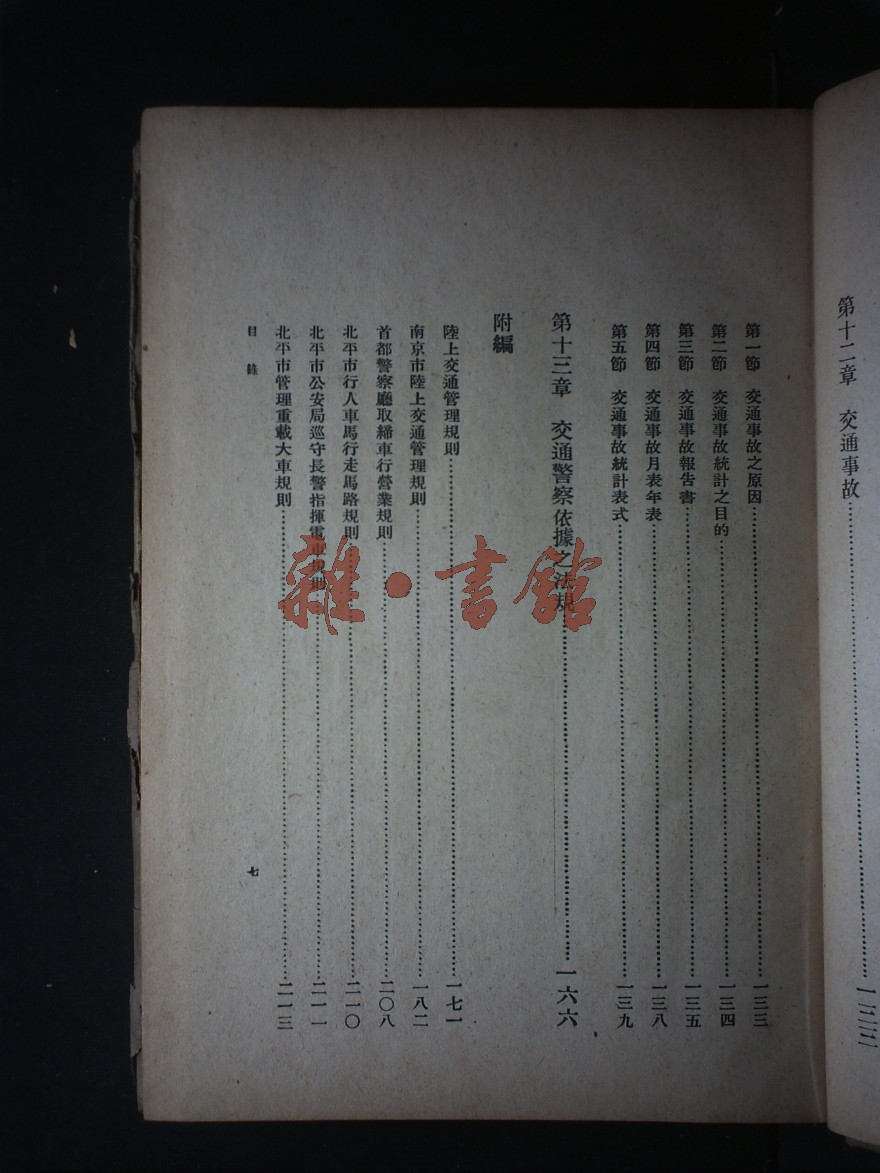 第十二章　交通事故……一三三
第一節　交通事故之原因……一三三
第二節　交通事故統計之目的……一三四
第三節　交通事故報告書……一三五
第四節　交通事故月表年表……一三八
第五節　交通事故統計表式……一三九
第十三章　交通警察依據之法規……一六六
附編
陸上交通管理規則……一七一
南京市陸上交通管理規則……一八二
首都警察廳取締車行營業規則……二〇八
北平市行人車馬行走馬路規則……二一〇
北平市公安局巡守長警指揮電車規則……二一一
北平市管理重載大車規則……二一三
目錄
七
雜·書館